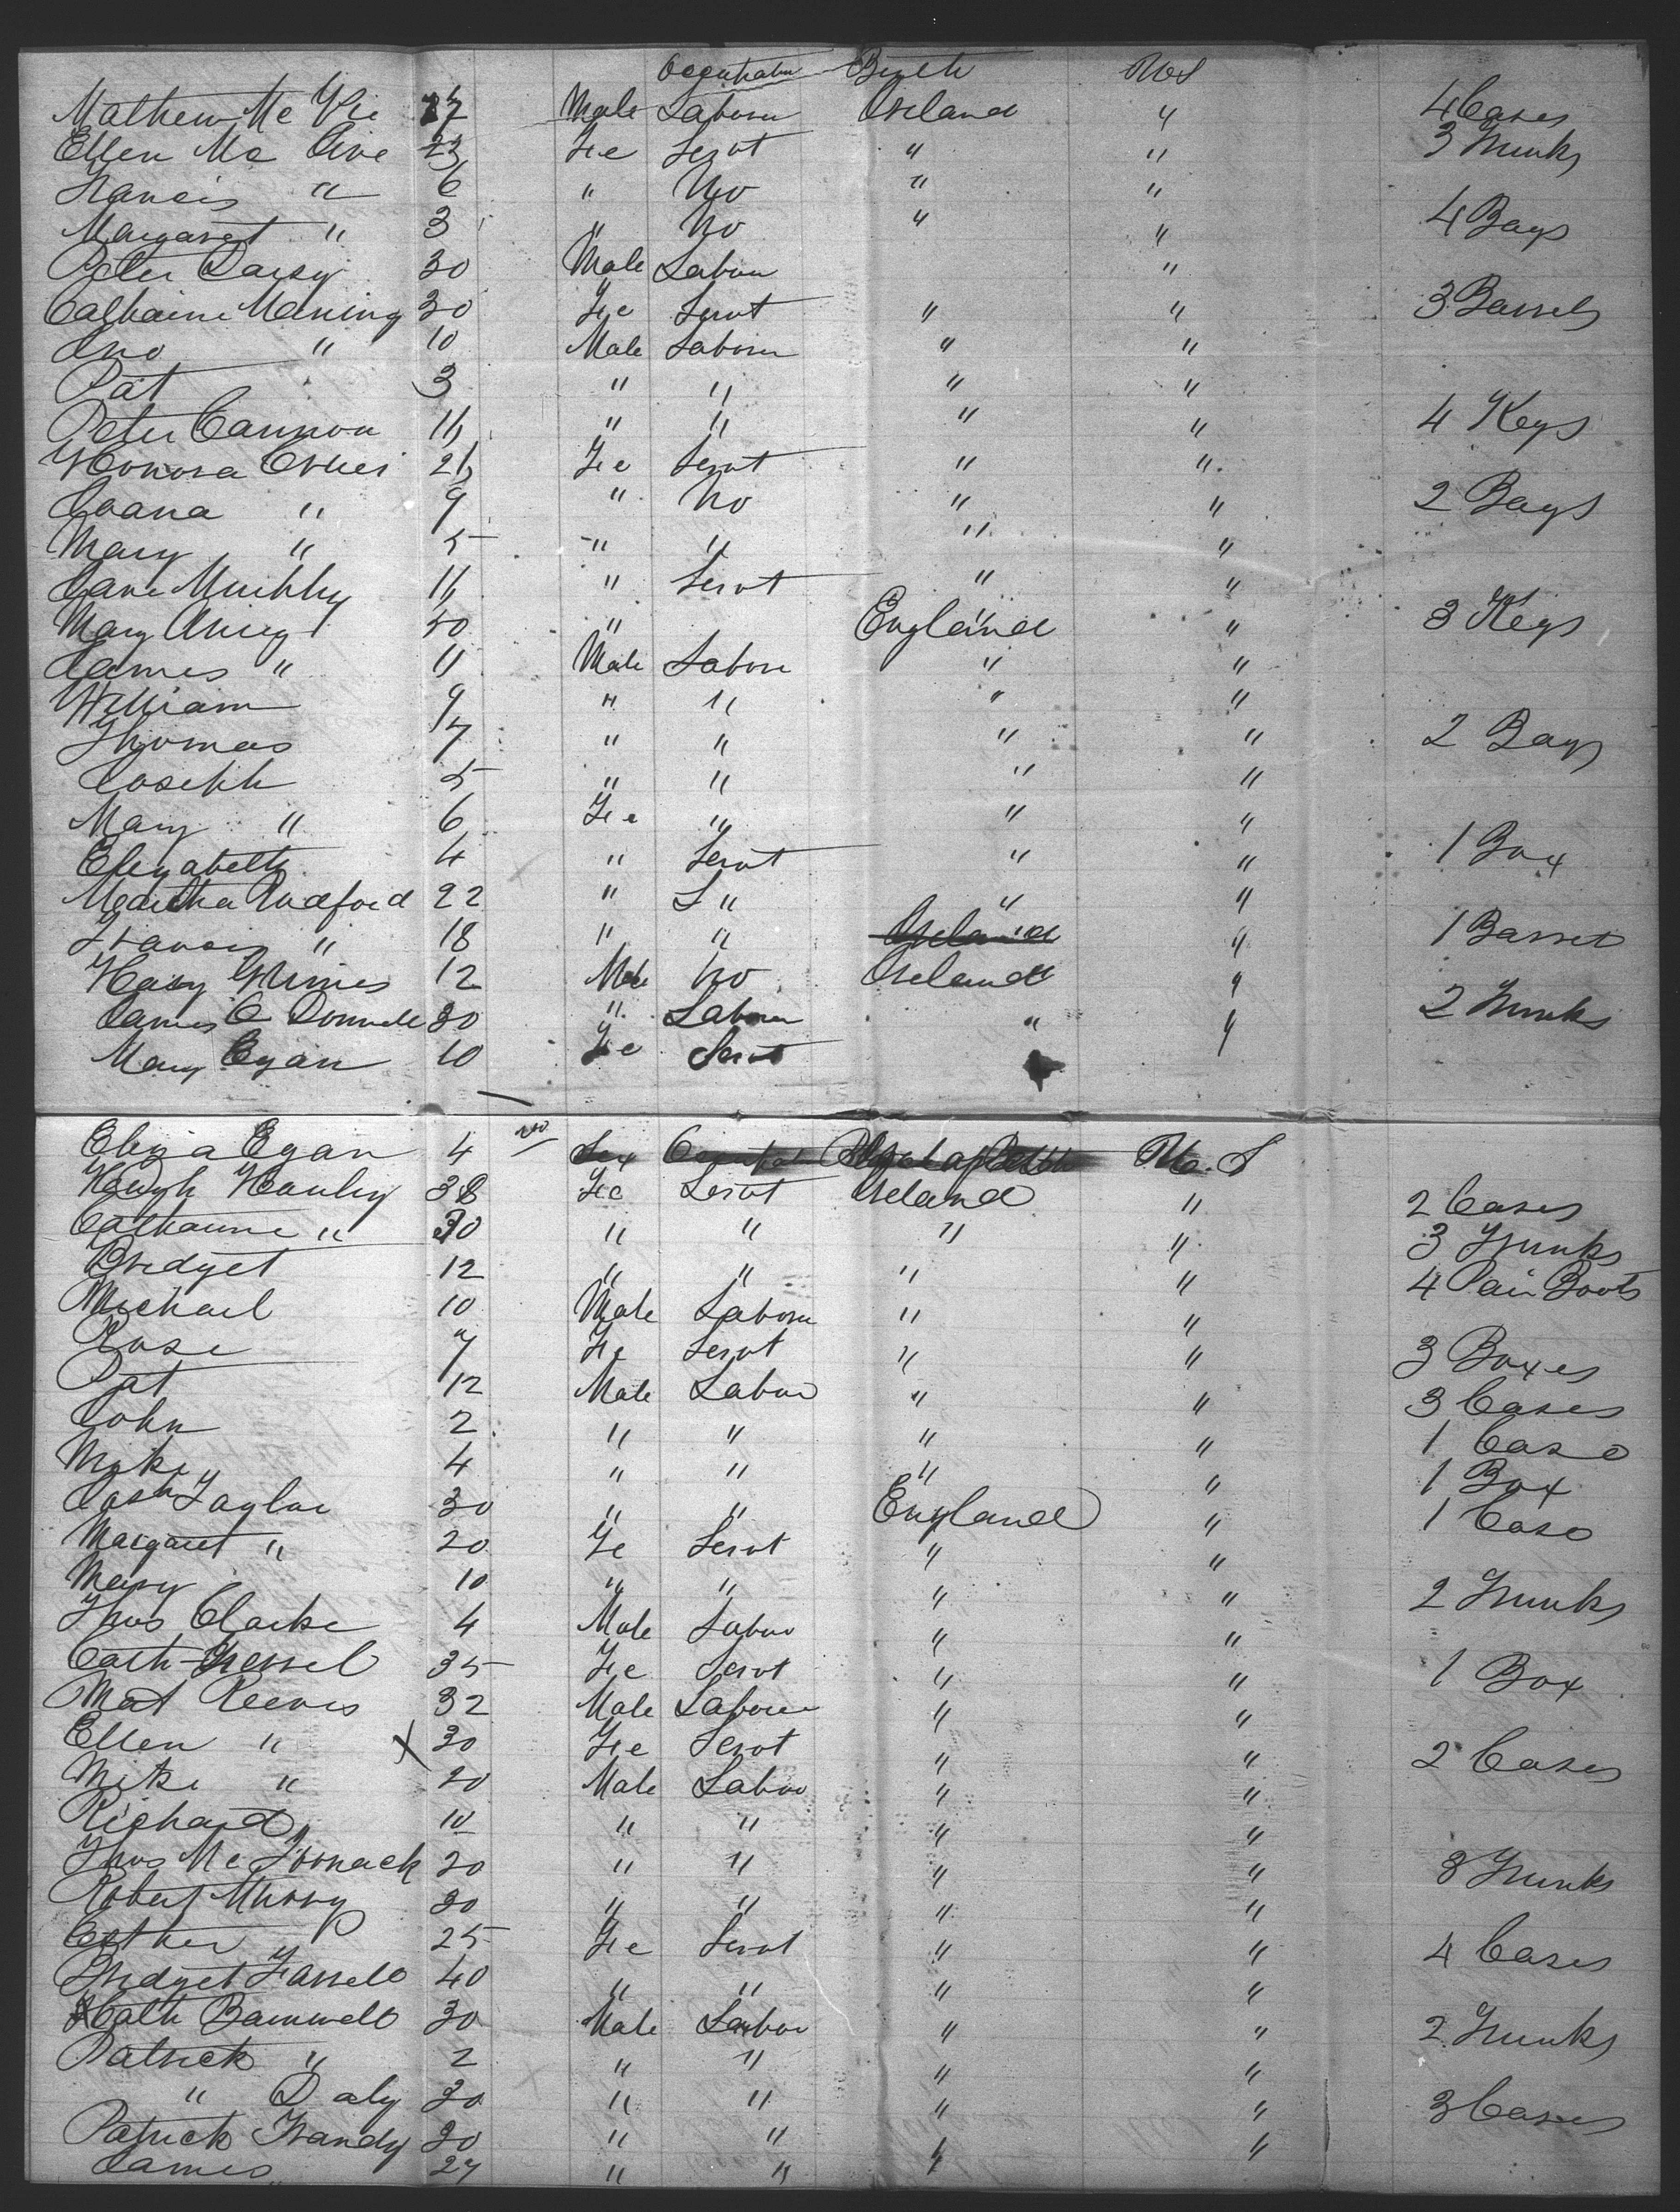 Occupation Birth U S
Mathew Mc Vie 27 Male Laborer Ireland " 4 Cases
Ellen Mc 23 Fe Servt " " 3 Trunks
Francis " 6 " No " "
Margaret " 3 " No " " 4 Bags
Peter Darsy 30 Male Labour "
Catharine Maning 30 Fe Servt " " 3 Barrels
Jno " 10 Male Laborer " "
Pat 3 " " " "
Peter Cannon 11 " " " " 4 Kegs
Honora 21 Fe Servt " "
Joana " 9 " No " " 2 Bags
Mary " 5 " " " "
Jane 11 " Servt " "
Mary 30 " England " 3 Kegs
James " 11 Male Labore " "
William 9 " " " "
Thomas 7 " " " " 2 Bags
Joseph 5 " " " "
Mary " 6 Fe " " "
Elizabeth 4 " Servt " " 1 Box
Martha Radford 22 " S " " "
Francis " 18 " " Ireland " 1 Barrel
Grimes 12 Male No Ireland "
James O Donnell 30 " Laborer " " 2 Trunks
Mary Egan 10 Fe Servt
Eliza Egan 4 Sex U. S
Hugh Hanley 38 Fe Servt Ireland " 2 Cases
Catharine " 30 " " " " 3 Trunks
Bridget 12 " " " " 4 Pair Boots
Michael 10 Male Laborer " "
Rose 7 Fe Servt " " 3 Boxes
Pat 12 Male Labor " " 3 Cases
John 2 " " " " 1 Case
Mike 4 " " " " 1 Box
Josh Taylor 30 " " England " 1 Case
Margaret " 20 Fe Servt " "
Mary 10 " " " " 2 Trunks
Thos Clarke 4 Male Labor " "
Cath 35 Fe Servt " " 1 Box
Mat Reeves 32 Male Laborer " "
Ellen " X 30 Fe Servt " " 2 Cases
Mike " 20 Male Labor " "
Richard " 10 " " " "
Thos Mc 20 " " " " 3 Trunks
Robert Murry 30 " " " "
Esther 25 Fe Servt " " 4 Cases
Bridget Farrell 40 " " " "
Cath Barnwell 30 Male Labor " " 2 Trunks
Patrick " 2 " " " "
" Daly 30 " " " " 3 Cases
Patrick 30 " " " "
James 27 " " "